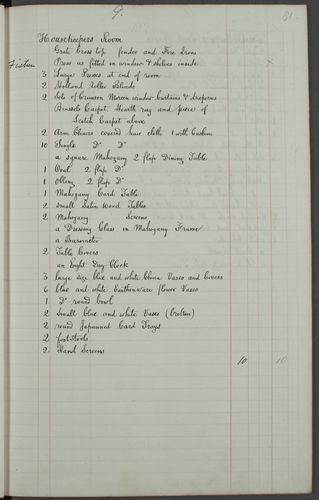 9.
81
Housekeepers Room
Grate Cross top fender and Fire Irons
Fixture Press as fitted in window & shelves inside x
3 Large Presses at end of room
2 Holland Roller Blinds
2 Sets of Crimson Moreen window Curtains & draperies
Brussels Carpet Hearth rug and piece of
Scotch Carpet above
2 Arm Chairs covered hair cloth 1 with Cushion
10 Single Do Do
a square Mahogany 2 flap Dining Table
1 Oval 2 flap Do
1 Oblong 2 flap Do
1 Mahogany Card Table
2 small Satin Wood Tables
2 Mahogany Screens
a Dressing Glass in Mahogany Frame
a Barometer
2 Table Covers
an Eight Day Clock
3 large size blue and white China Vases and Covers
6 blue and white Earthenware flower Vases
1 Do round bowl
2 Small blue and white Vases (broken)
2 round Japanned Card Trays
2 footstools
2 Hand Screens
10 10